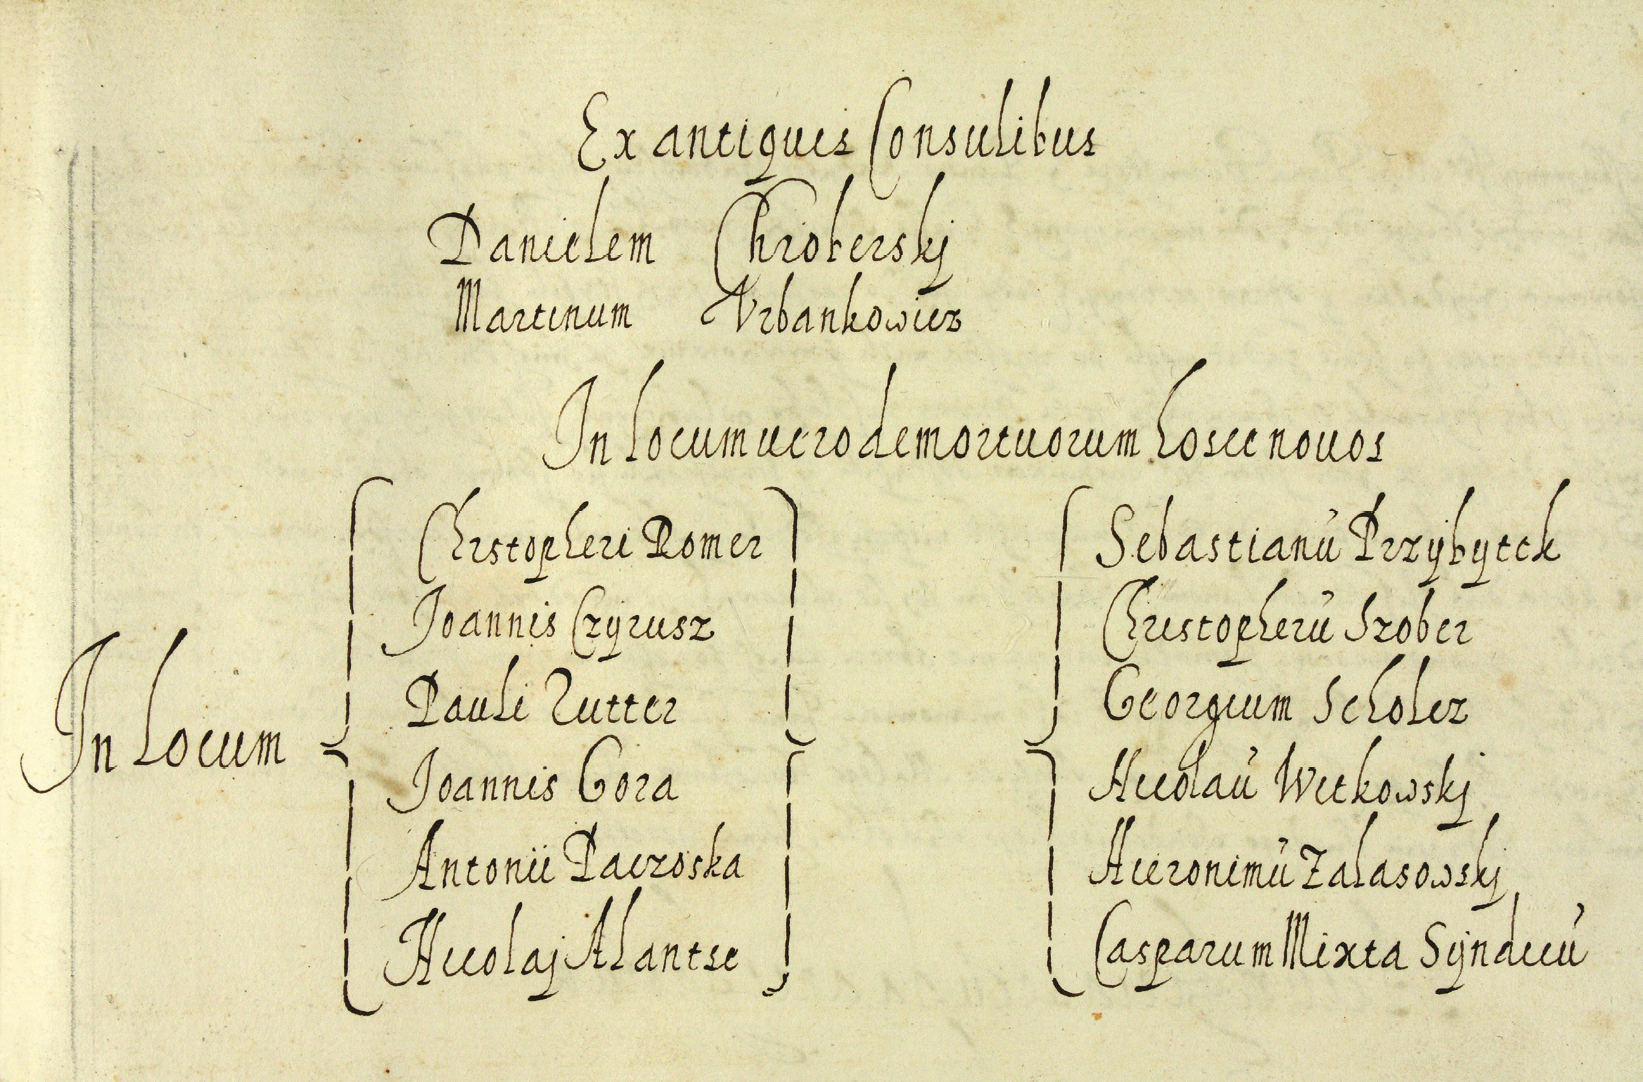 Ex antiquis Consulibus
Danielem Chroberskj
Martinum Vrbankowicz
In locum uero demortuorum hosce nouos
In Locum
Chrstopheri Romer
Joannis Czÿrusz
Pauli Zutter
Joannis Gora
Antonii Paczoska
Nicolaj Alantse
Sebastianú Przÿbÿtek
Christopherú Szober
Georgium Scholcz
Nicolaú Witkowskj
Hieronimú Zalasowskj
Casparum Mixta Sÿndicú